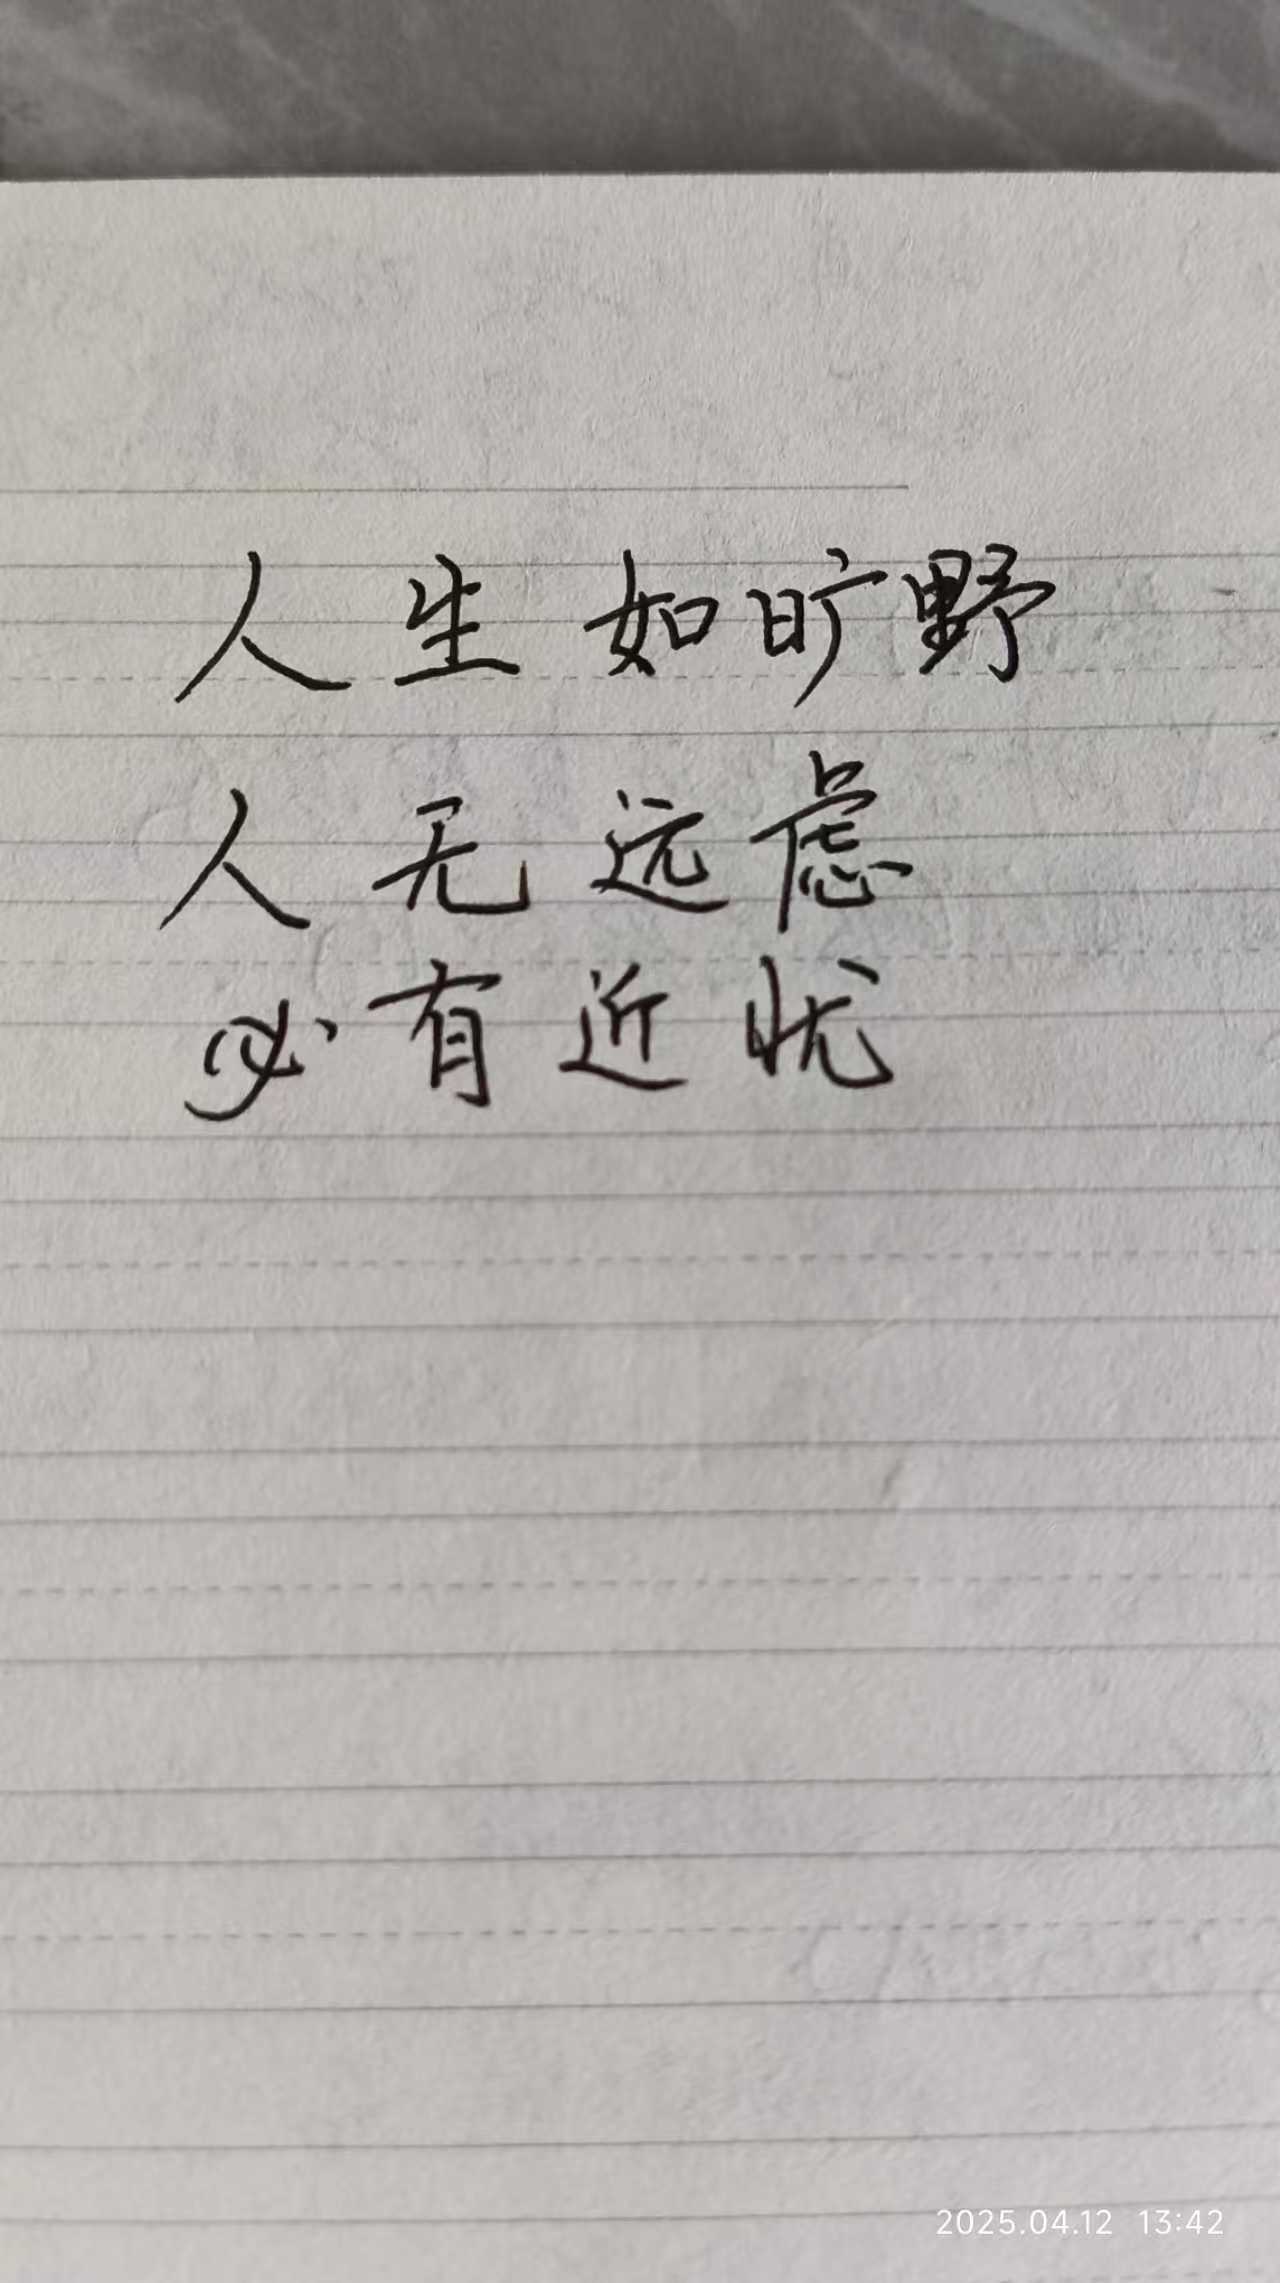 人生如旷野
人无远虑
必有近忧
2025.04.12 13:42